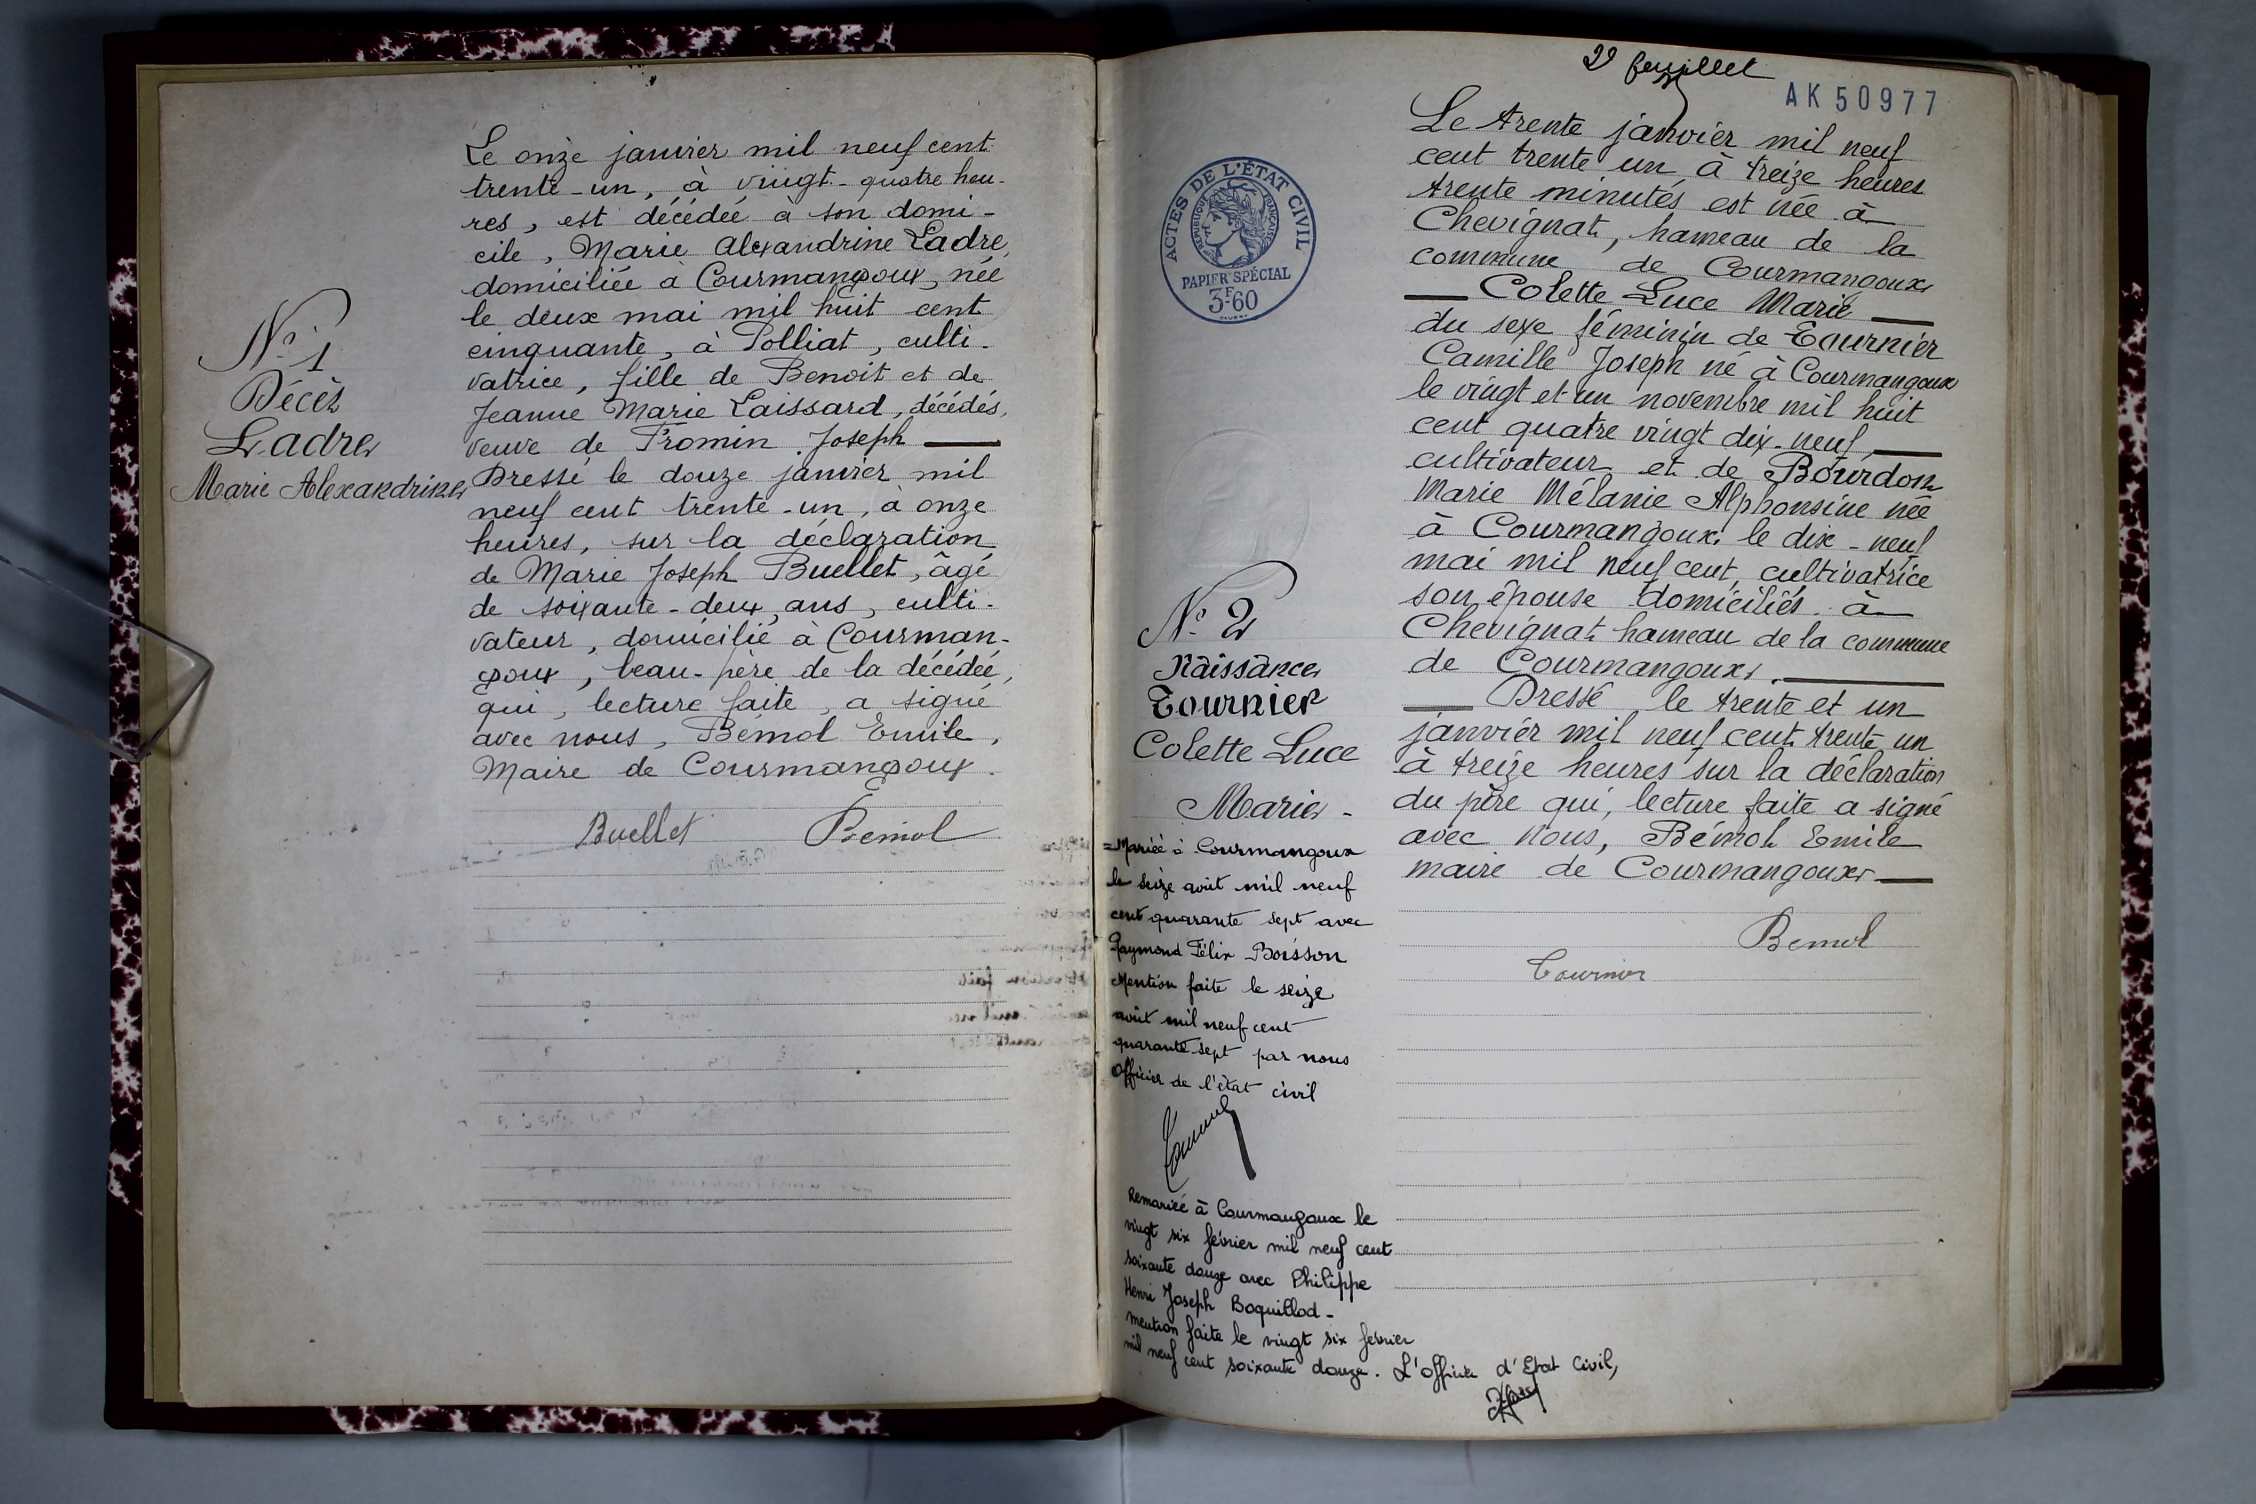 N° 1
Décès
Ladre
Marie Alexandrine
Le onze janvier mil neuf cent
trente-un, à vingt-quatre heu-
res, est décédée à son domi-
cile, Marie Alexandrine Ladre,
domiciliée à Courmangoux, née
le deux mai mil huit cent
cinquante, à Polliat, culti-
vatrice, fille de Benoit et de
Jeanne Marie Laissard, décédés,
veuve de Fromin Joseph
Dressé le douze janvier mil
neuf cent trente-un, à onze
heures, sur la déclaration
de Marie Joseph Buellet, âgé
de soixante-deux ans, culti-
vateur, domicilié à Courman-
goux, beau-père de la décédée,
qui, lecture faite, a signé
avec nous, Bémol Emile,
Maire de Courmangoux.
Buellet Bémol
2e feuillet
AK 50977
ACTES DE L'ÉTAT CIVIL
RÉPUBLIQUE FRANÇAISE
PAPIER SPÉCIAL
3F60
N° 2
Naissance
Tournier
Colette Luce
Marie -
Mariée à Courmangoux
le seize août mil neuf
cent quarante sept avec
Raymond Félix Boisson
Mention faite le seize
août mil neuf cent
quarante sept par nous
Officier de l'état civil
Remariée à Courmangoux le
vingt six février mil neuf cent
soixante douze avec Philippe
Henri Joseph Boquillod -
mention faite le vingt six fevrier
mil neuf cent soixante douze. L'officier d'Etat Civil,
Le trente janvier mil neuf
cent trente un à treize heures
trente minutes est née à
Chevignat, hameau de la
commune de Courmangoux
Colette Luce Marie
du sexe féminin de Tournier
Camille Joseph né à Courmangoux
le vingt et un novembre mil huit
cent quatre vingt dix-neuf,
cultivateur et de Bourdon
Marie Mélanie Alphonsine née
à Courmangoux le dix-neuf
mai mil neuf cent, cultivatrice
son épouse domiciliés à
Chevignat hameau de la commune
de Courmangoux.
Dressé le trente et un
janvier mil neuf cent trente un
à treize heures sur la déclaration
du père qui, lecture faite a signé
avec nous, Bémol Emile
maire de Courmangoux
Bemol
Tournier